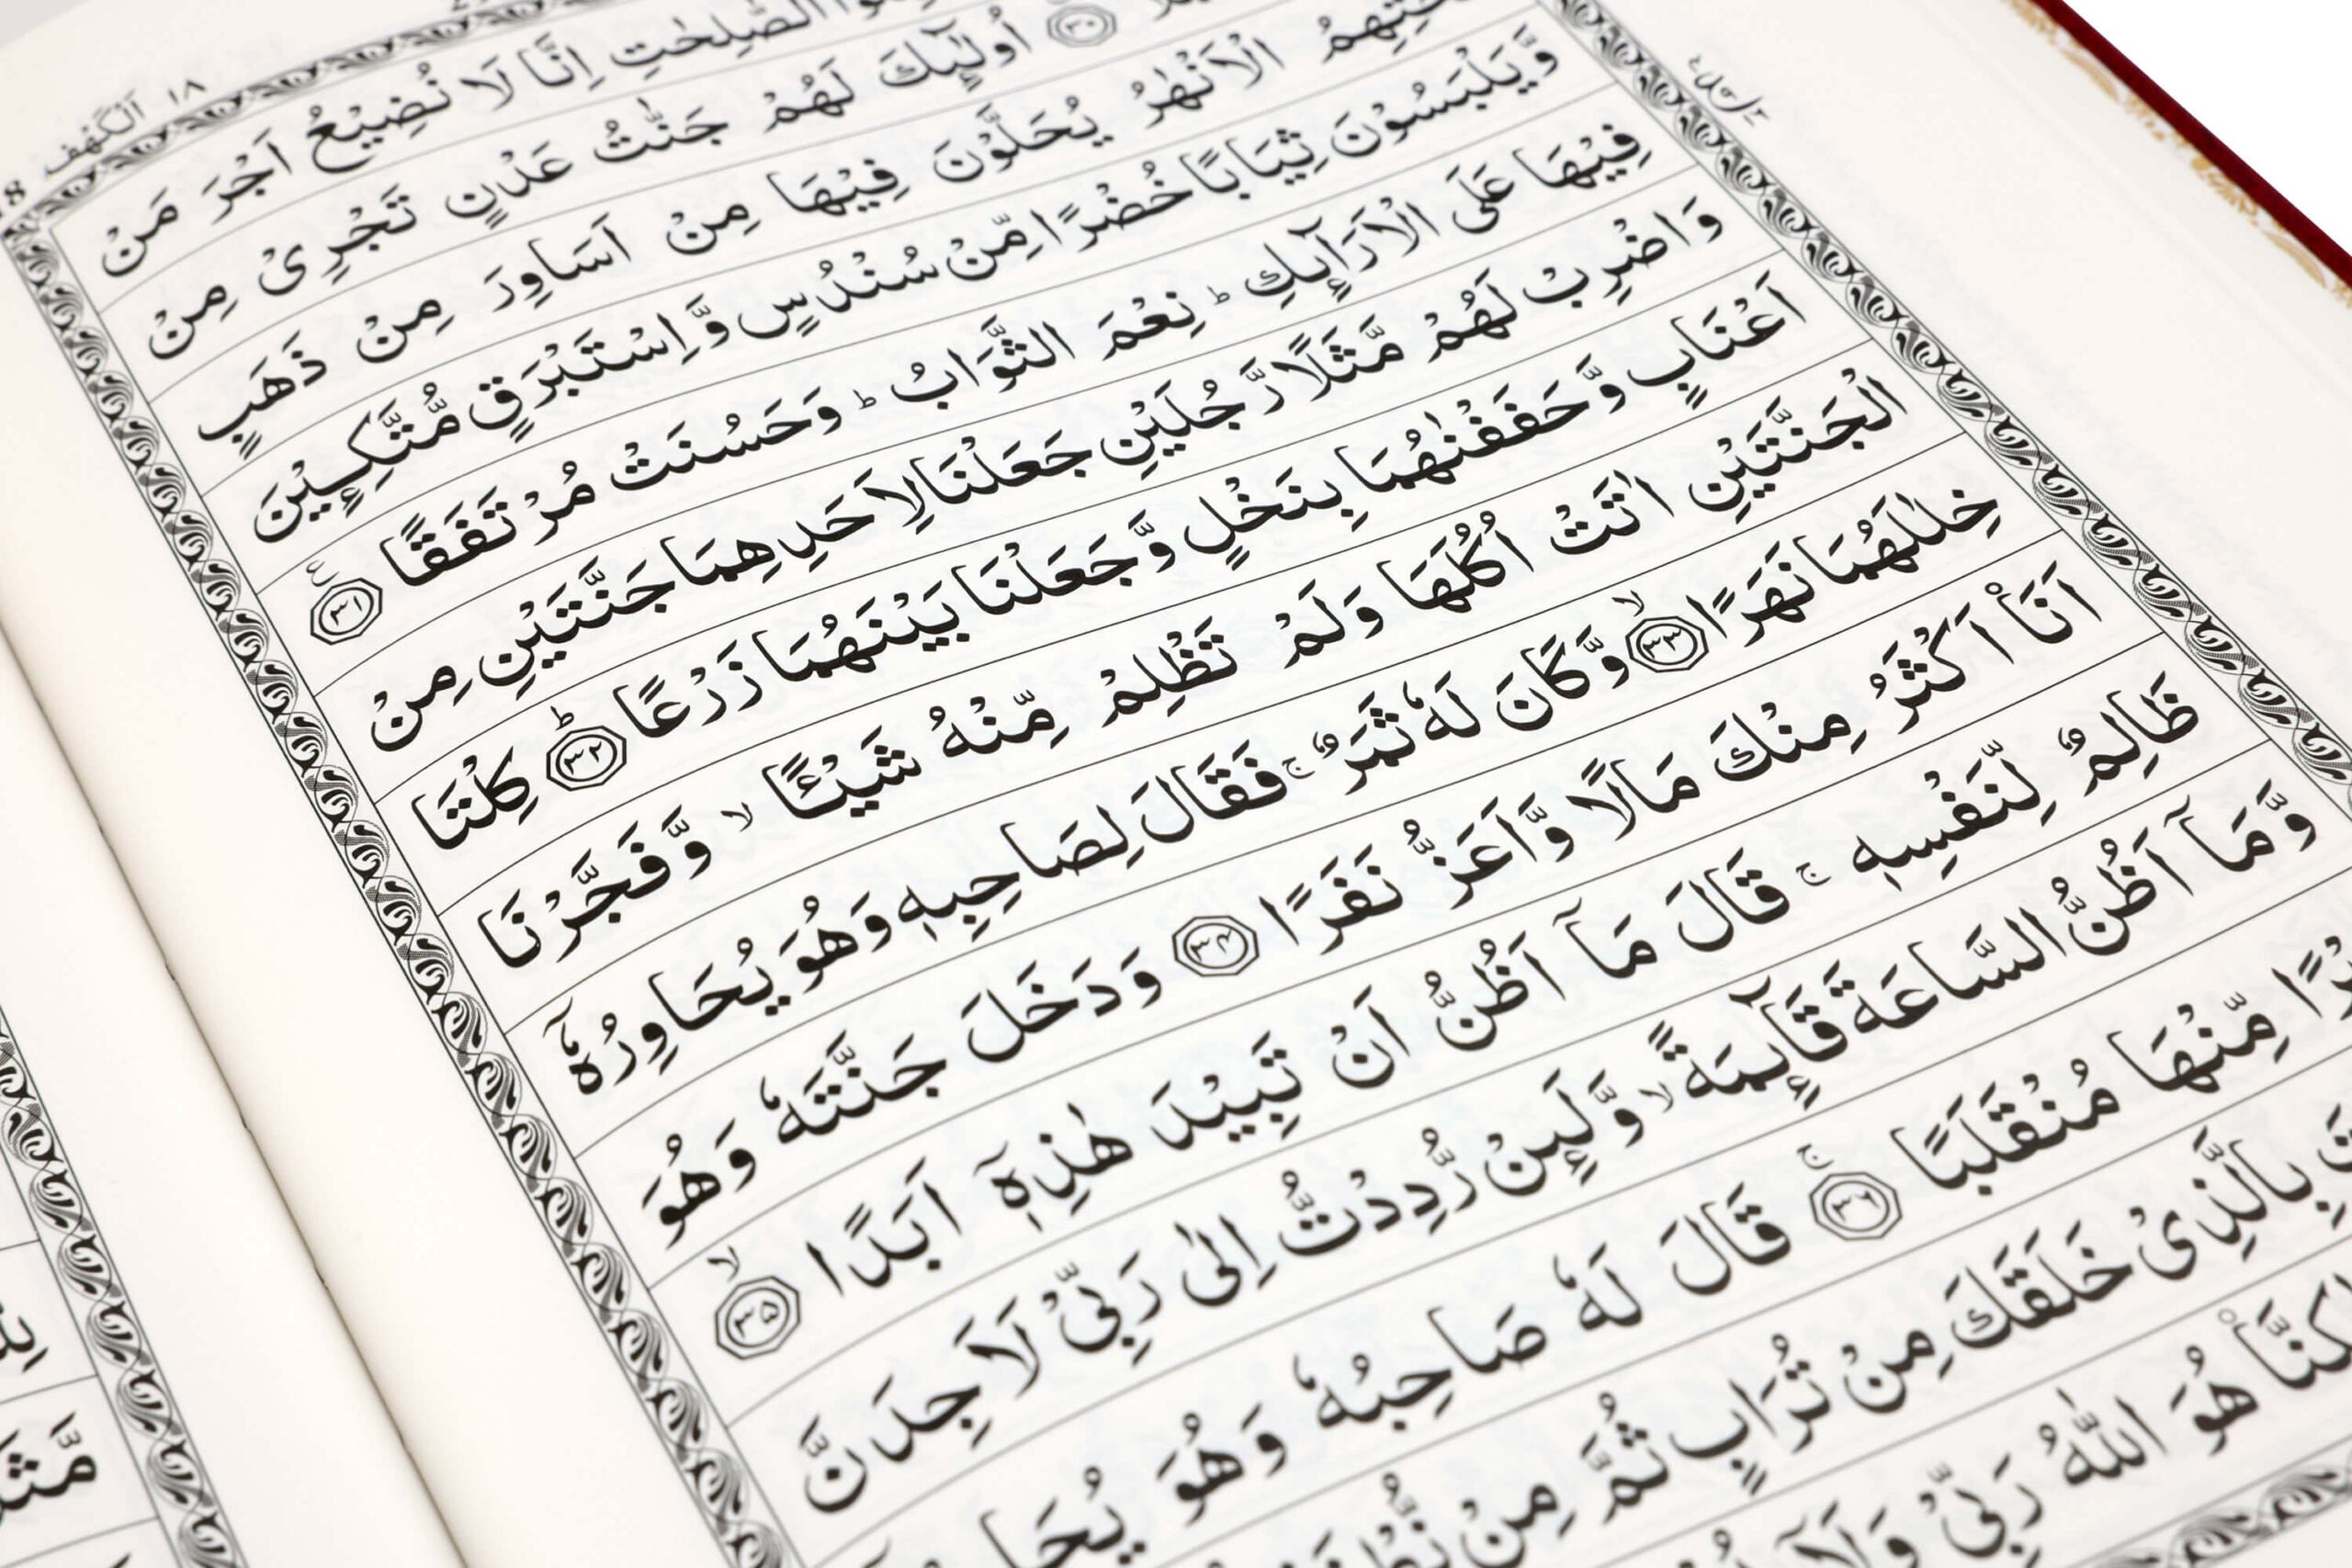 الكهف ١٨
الصّٰلِحٰتِ اِنَّا لَا نُضِيْعُ اَجْرَ مَنْ
اُولٰٓئِكَ لَهُمْ جَنّٰتُ عَدْنٍ تَجْرِىْ مِنْ
الْاَنْهٰرُ يُحَلَّوْنَ فِيْهَا مِنْ اَسَاوِرَ مِنْ ذَهَبٍ
وَّيَلْبَسُوْنَ ثِيَابًا خُضْرًا مِّنْ سُنْدُسٍ وَّاِسْتَبْرَقٍ مُّتَّكِـِٕيْنَ
فِيْهَا عَلَى الْاَرَآئِكِ ؕ نِعْمَ الثَّوَابُ ؕ وَحَسُنَتْ مُرْتَفَقًا ۙ ٣١
وَاضْرِبْ لَهُمْ مَّثَلًا رَّجُلَيْنِ جَعَلْنَا لِاَحَدِهِمَا جَنَّتَيْنِ مِنْ
اَعْنَابٍ وَّحَفَفْنٰهُمَا بِنَخْلٍ وَّجَعَلْنَا بَيْنَهُمَا زَرْعًا ؕ ٣٢ كِلْتَا
الْجَنَّتَيْنِ اٰتَتْ اُكُلَهَا وَلَمْ تَظْلِمْ مِّنْهُ شَيْـًٔا ۙ وَّفَجَّرْنَا
خِلٰلَهُمَا نَهَرًا ۙ ٣٣ وَّكَانَ لَهٗ ثَمَرٌ ۚ فَقَالَ لِصَاحِبِهٖ وَهُوَ يُحَاوِرُهٗٓ
اَنَا۠ اَكْثَرُ مِنْكَ مَالًا وَّاَعَزُّ نَفَرًا ٣٤ وَدَخَلَ جَنَّتَهٗ وَهُوَ
ظَالِمٌ لِّنَفْسِهٖ ۚ قَالَ مَآ اَظُنُّ اَنْ تَبِيْدَ هٰذِهٖٓ اَبَدًا ۙ ٣٥
وَّمَآ اَظُنُّ السَّاعَةَ قَآئِمَةً ۙ وَّلَئِنْ رُّدِدْتُّ اِلٰى رَبِّىْ لَاَجِدَنَّ
مِّنْهَا مُنْقَلَبًا ۚ قَالَ لَهٗ صَاحِبُهٗ وَهُوَ
بِالَّذِىْ خَلَقَكَ مِنْ تُرَابٍ ثُمَّ مِنْ
هُوَ اللّٰهُ رَبِّىْ